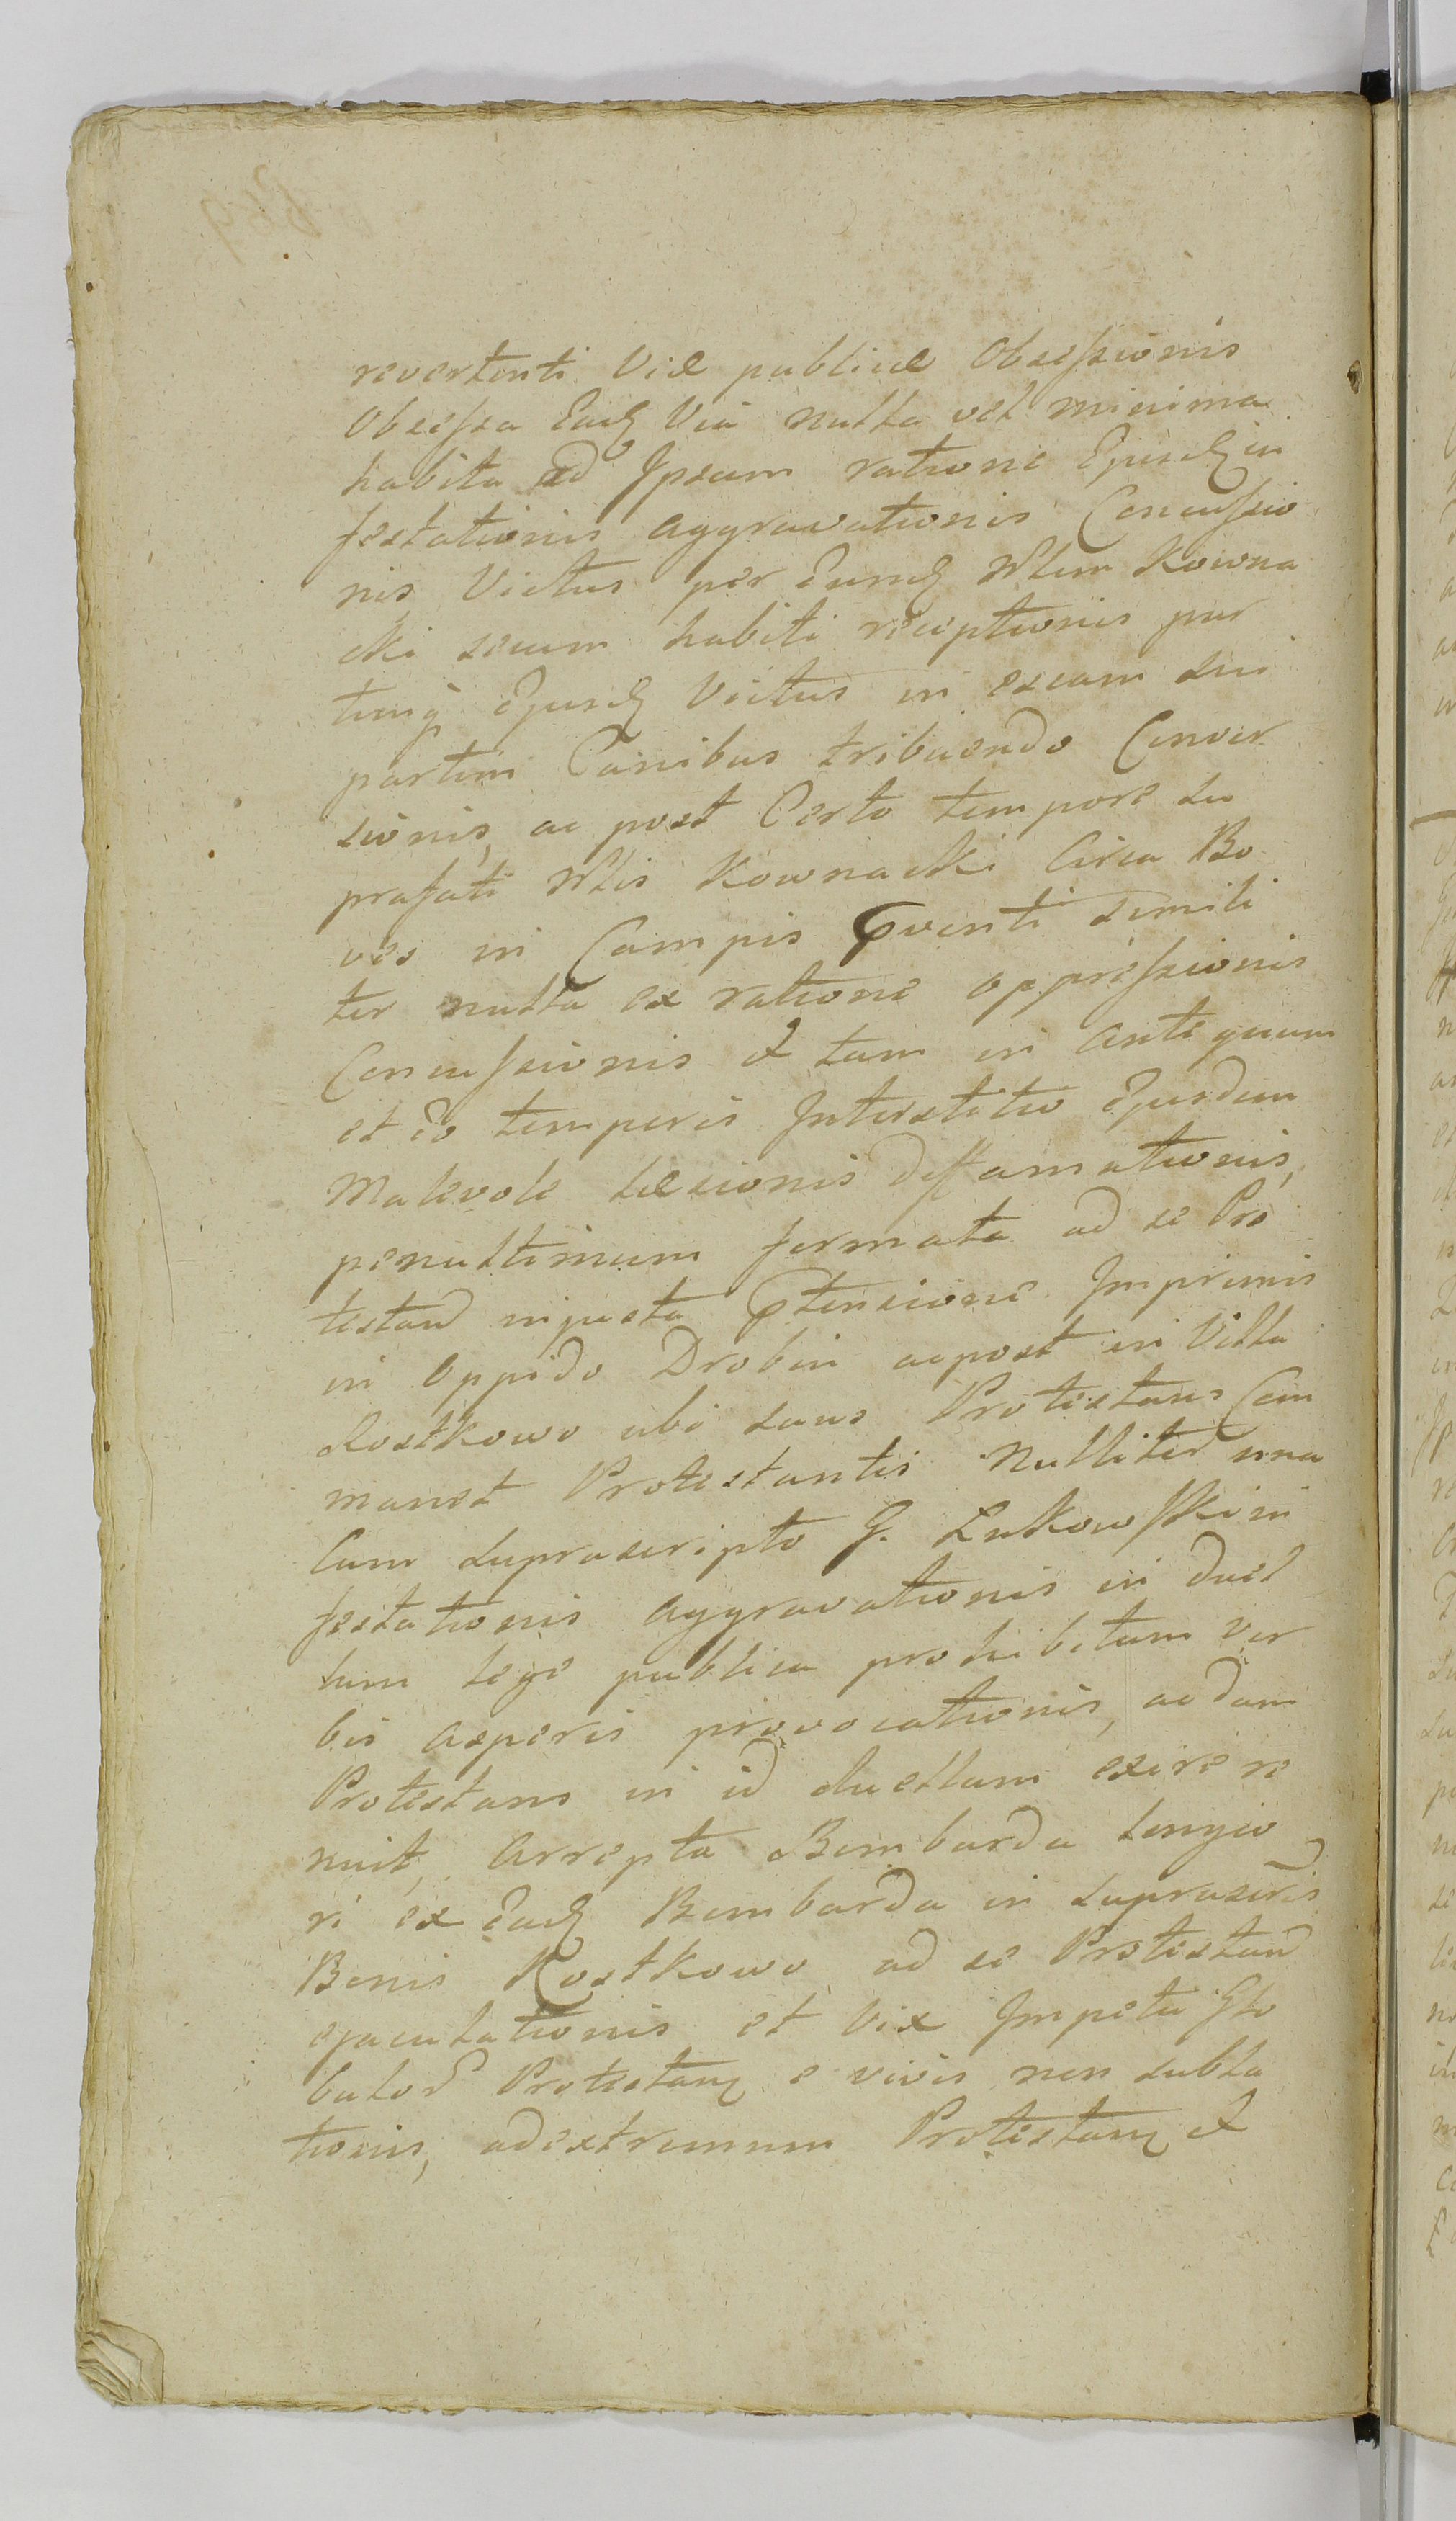 revertenti Viæ publicæ Obsessionis
Obsessa Eadꝫ Via nulla vel minima
habita ad Ipsum ratione Ejusdꝫ in
festationis aggravationis Concussio
nis Victus per Eundꝫ Mlem Kowna
cki secum habiti receptionis par
timq̨ Ejusdꝫ Victus in escam sui
partim Canibus tribuendo Conver
sionis, ac post Certo tempore su
prafati Mlis Kownacki Circa Bo
ves in Campis Eventi Simili
ter nulla ex ratione oppressionis
Concussionis et tam in antequam
et Eo temporis Interstitio Ejusdem
Malevole læsionis deffamationis,
penultimum formata ad se Pro
testand injusta Ptensione Imprimis
in Oppido Drobin ac post in Villa
Rostkowo ubi suus Protestans Com
manet Protestantis Nulliter una
Cum suprascripto G. Łukowski in
festationis aggravationis in duel
lum lege publica prohibitum ver
bis asperis provocationis, ac dum
Protestans in id duellum exire re
nuit, Arrepta Bombarda longio
ri ex Eadꝫ Bombarda in suprascris
Bonis Rostkowo ad se Protestand
ejaculationis et vix Impetu Glo
bulor Protestanꝫ e vivis non subla
tionis, ad extremum Protestanꝫ et